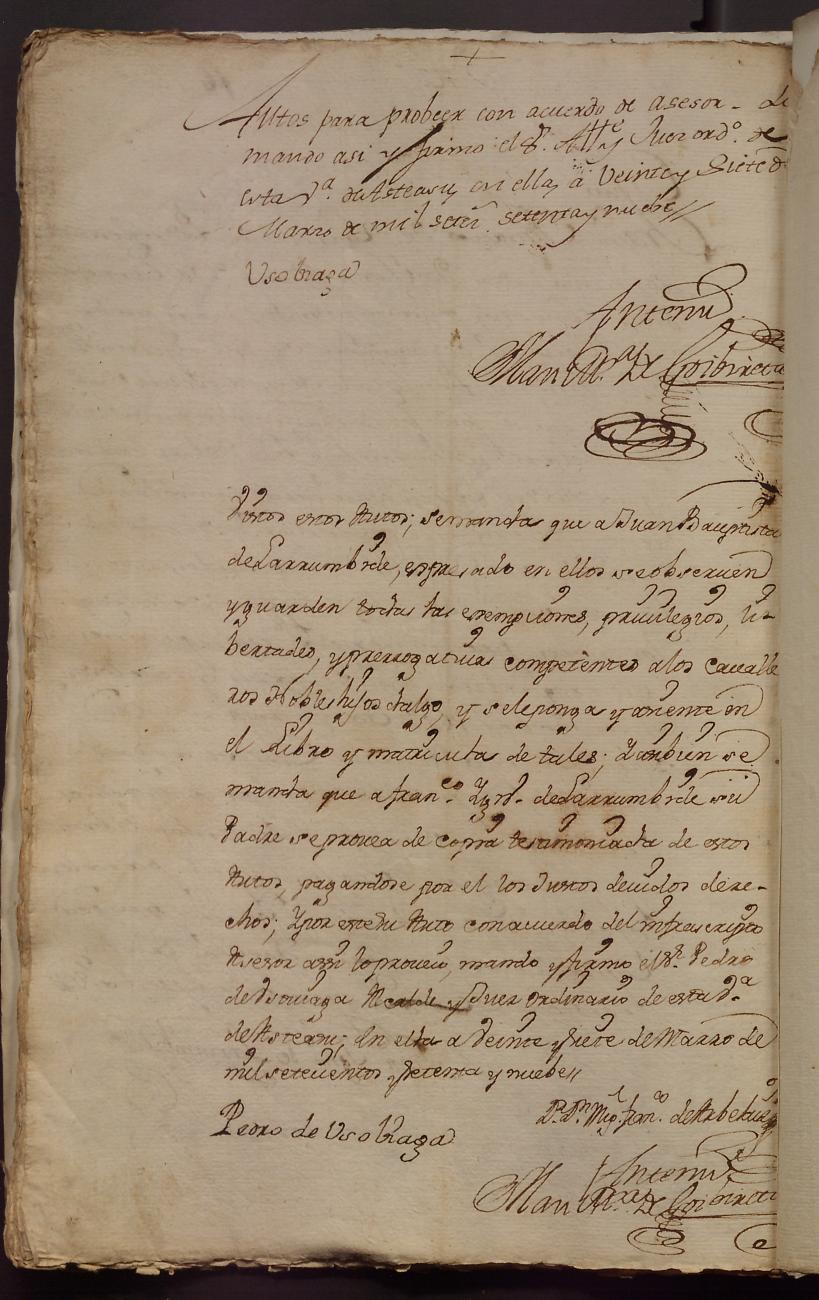 Auttos para probeer con acuerdo de asesor - Lo
mando asi y firmo el S.r Alltẽ y Juez ordº. de
esta V.ª de Asteasu, en ella, â Veinte y Siete de
Marzo de mil setei.s setenta y nuebe//
Usobiaga
Antemi
Man.l de Goibideta
Vistos estos Autos; se manda que a Juan Bauptista
de Larrumbide, expresado en ellos se observen
y guarden todas las exempciones, privilegios, li-
bertades, y prerrogativas competentes a los cavalle
ros Nobles hijos dalgo, y se le ponga y asiente en
el Libro y matricula de tales; Y tambien se
manda que a fran.co Ygn.º de Larrumbide su
Padre se provea de copia testimoniada de estos
Autos, pagandose por el los Justos devidos dere-
chos; Y por este su Auto con acuerdo del infrascripto
Asesor assi lo proveio, mando y firmo el S.r Pedro
de Usoviaga Alcalde y Juez ordinario de esta V.ª
de Asteasu; En ella a Veinte y Siete de Marzo de
mil setecientos y Setenta y nuebe//
Pedro de Usobiaga
D.r D.n Mig.l fran.co de
Antemi
Man.l de Goibideta